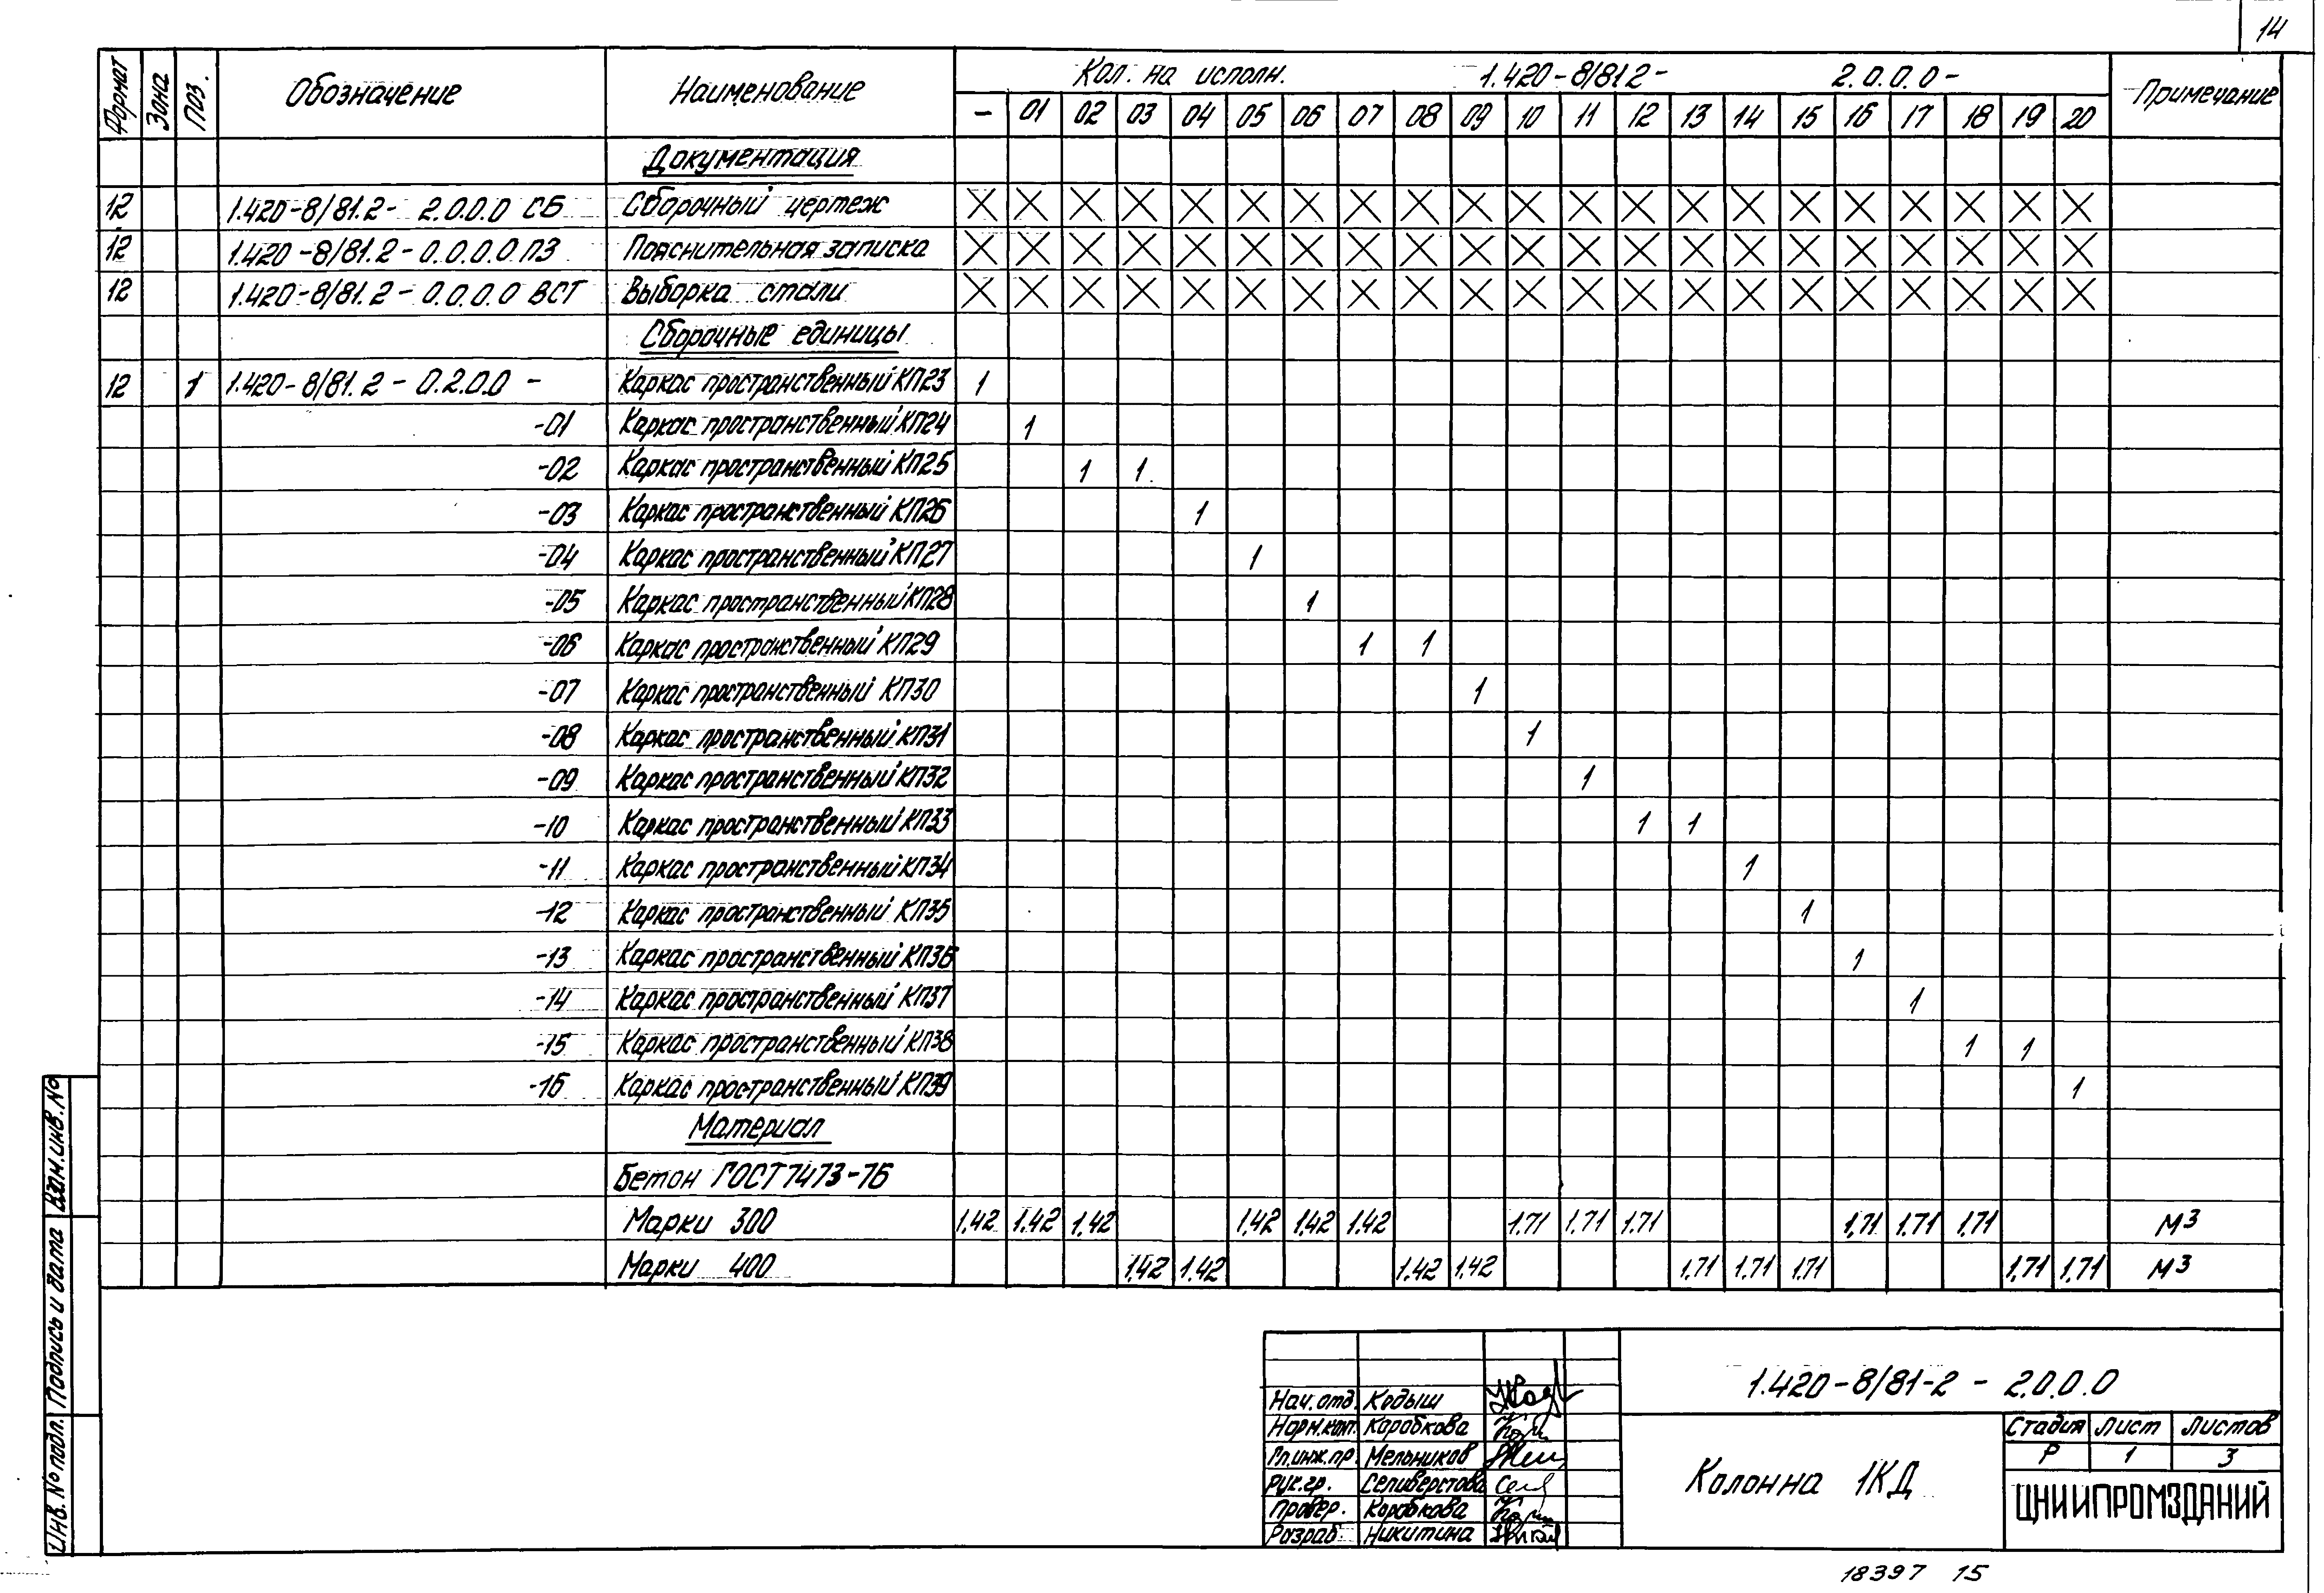 14
Формат Зона Поз. Обозначение Наименование Кол. на исполн. 1.420-8/81.2- 2.0.0.0- Примечание
- 01 02 03 04 05 06 07 08 09 10 11 12 13 14 15 16 17 18 19 20
Документация
12 1.420-8/81.2- 2.0.0.0 СБ Сборочный чертеж X X X X X X X X X X X X X X X X X X X X X
12 1.420-8/81.2-0.0.0.0 ПЗ Пояснительная записка X X X X X X X X X X X X X X X X X X X X X
12 1.420-8/81.2-0.0.0.0 ВСТ Выборка стали X X X X X X X X X X X X X X X X X X X X X
Сборочные единицы
12 1 1.420-8/81.2-0.2.0.0 - Каркас пространственный КП23 1
-01 Каркас пространственный КП24 1
-02 Каркас пространственный КП25 1 1
-03 Каркас пространственный КП26 1
-04 Каркас пространственный КП27 1
-05 Каркас пространственный КП28 1
-06 Каркас пространственный КП29 1 1
-07 Каркас пространственный КП30 1
-08 Каркас пространственный КП31 1
-09 Каркас пространственный КП32 1
-10 Каркас пространственный КП33 1 1
-11 Каркас пространственный КП34 1
-12 Каркас пространственный КП35 1
-13 Каркас пространственный КП36 1
-14 Каркас пространственный КП37 1
-15 Каркас пространственный КП38 1 1
-16 Каркас пространственный КП39 1
Материал
Бетон ГОСТ 7473-76
Марки 300 1.42 1.42 1.42 1.42 1.42 1.42 1.71 1.71 1.71 1.71 1.71 1.71 М3
Марки 400 1.42 1.42 1.42 1.42 1.71 1.71 1.71 1.71 1.71 М3
Инв. № подл. Подпись и дата Взам. инв. №
1.420-8/81-2 - 2.0.0.0
Нач. отд. Кодыш
Норм. конт. Коробкова
Гл. инж. пр. Мельников
Рук. гр. Селиверстова
Провер. Коробкова
Разраб. Никитина
Колонна 1КД
Стадия Лист Листов
Р 1 3
ЦНИИПРОМЗДАНИЙ
18397 15